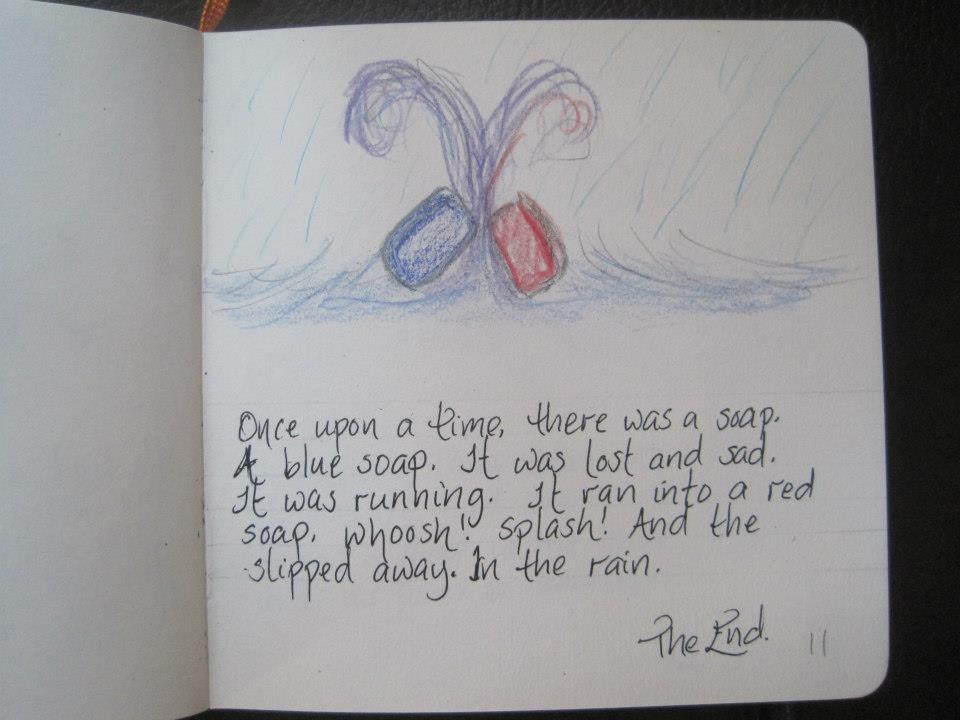 Once upon a time, there was a soap.
A blue soap. It was lost and sad.
It was running. It ran into a red
soap. Whoosh! Splash! And the
slipped away. In the rain.
The End.
11